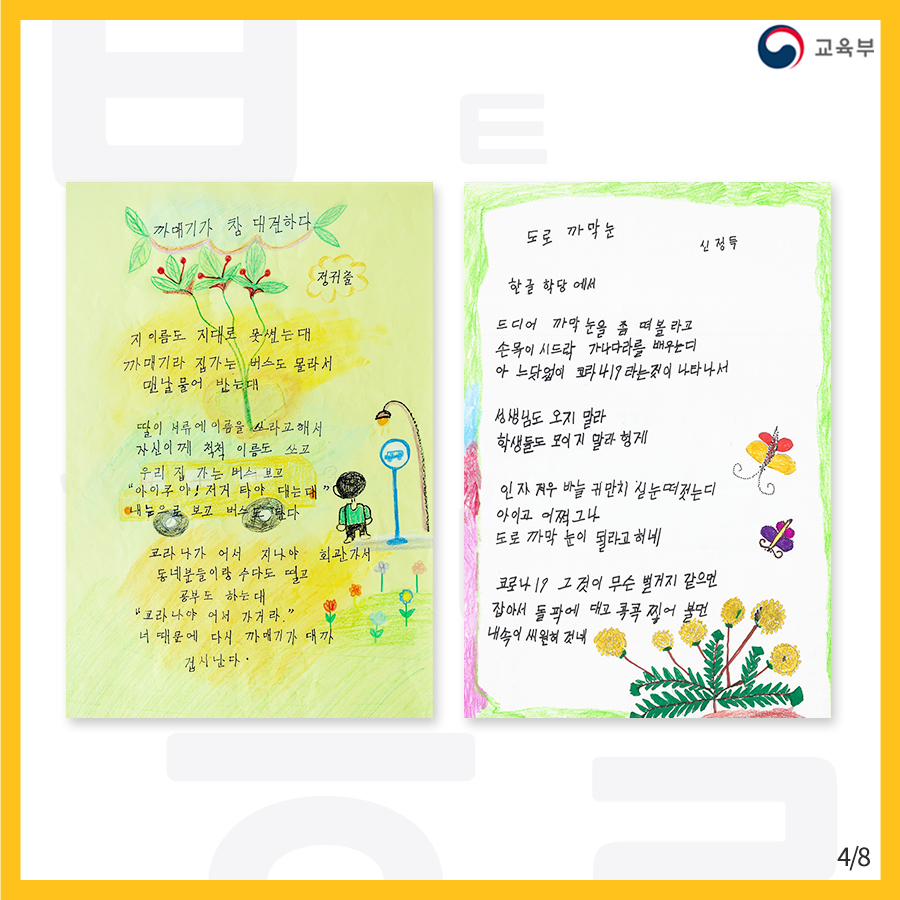 교육부
까매기가 참 대견하다
정귀출
지이름도 지대로 못썼는대
까매기라 집가는 버스도 몰라서
맨날 물어 밨는대
딸이 서류에 이름을 쓰라고 해서
자신이게 척척 이름도 쓰고
우리 집 가는 버스 보고
"아이구야! 저거 타야 대는대"
내눈으로 보고 버스도 탄다
코라나가 어서 지나야 회관가서
동네분들이랑 수다도 떨고
공부도 하는대
"코라나야 어서 가거라."
너 때문에 다시 까매기가 대까
겁시난다.
도로 까막눈
신정득
한글 학당에서
드디어 까막눈을 좀 떠볼라고
손목이 시드락 가나다라를 배우는디
아 느닷없이 코라나19라는것이 나타나서
성생님도 오지 말라
학생들도 모이지 말라 헝게
인자 겨우 바늘 귀만치 실눈 떠것는디
아이고 어쩌그나
도로 까막 눈이 덜라고 허네
코로나19 그것이 무슨 벌거지 같으면
잡아서 돌팍에 대고 콕콕 찧어 불면
내속이 씨원허것네
4/8